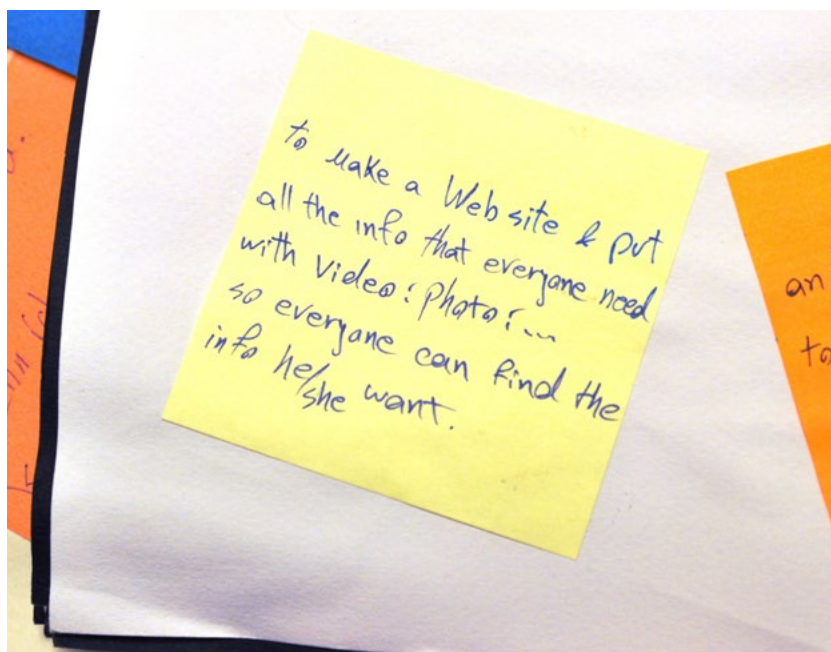 to make a Web site & put
all the info that everyone need
with video; photo; ...
so everyone can find the
info he/she want.
an
to